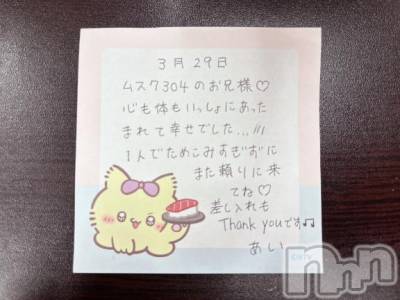 3月29日
ムスク304のお兄様♡
心も体もいっしょにあった
まれて幸せでした...///
1人でためこみすぎずに
また頼りに来
てね♡
差し入れも
Thank youです♫
あい
©NTV
nnn